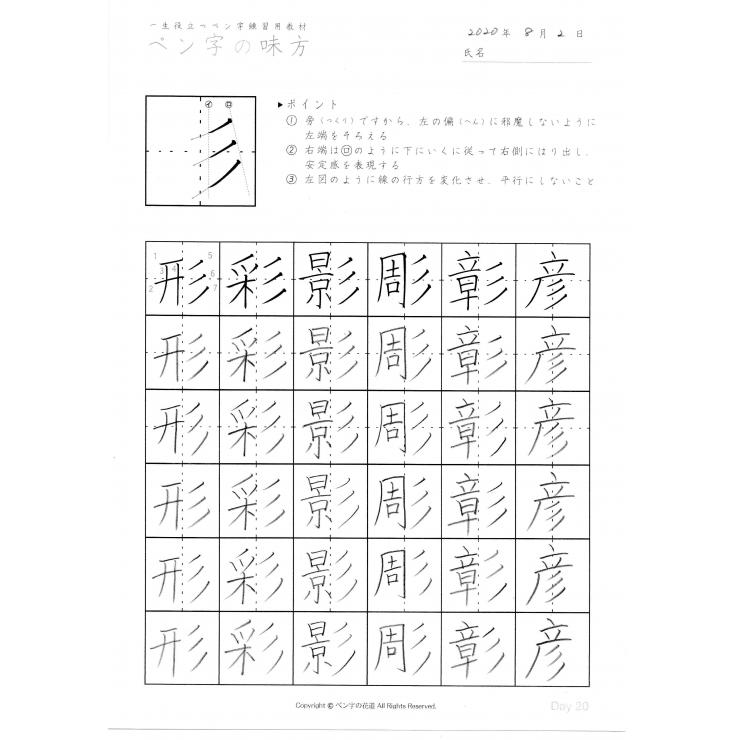 一生役立つペン字練習用教材
ペン字の味方
2020年 8月 2日
氏名
イ ロ
彡
▶ポイント
① 旁(つくり)ですから、左の偏(へん)に邪魔しないように
左端をそろえる
② 右端はロのように下にいくに従って右側にはり出し、
安定感を表現する
③ 左図のように線の行方を変化させ、平行にしないこと
1 2 3 4 5 6 7
形 彩 影 彫 彰 彦
形 彩 影 彫 彰 彦
形 彩 影 彫 彰 彦
形 彩 影 彫 彰 彦
形 彩 影 彫 彰 彦
形 彩 影 彫 彰 彦
Copyright © ペン字の花道 All Rights Reserved.
Day 20